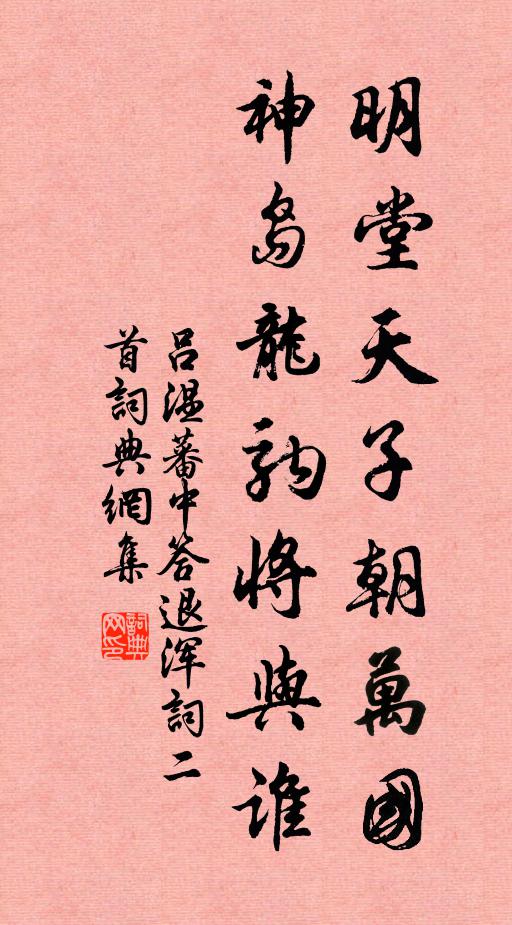 明堂天子朝萬國
神島龍駒將與誰
呂温蕃中答退浑詞二
首詞典網集
詞典
网印